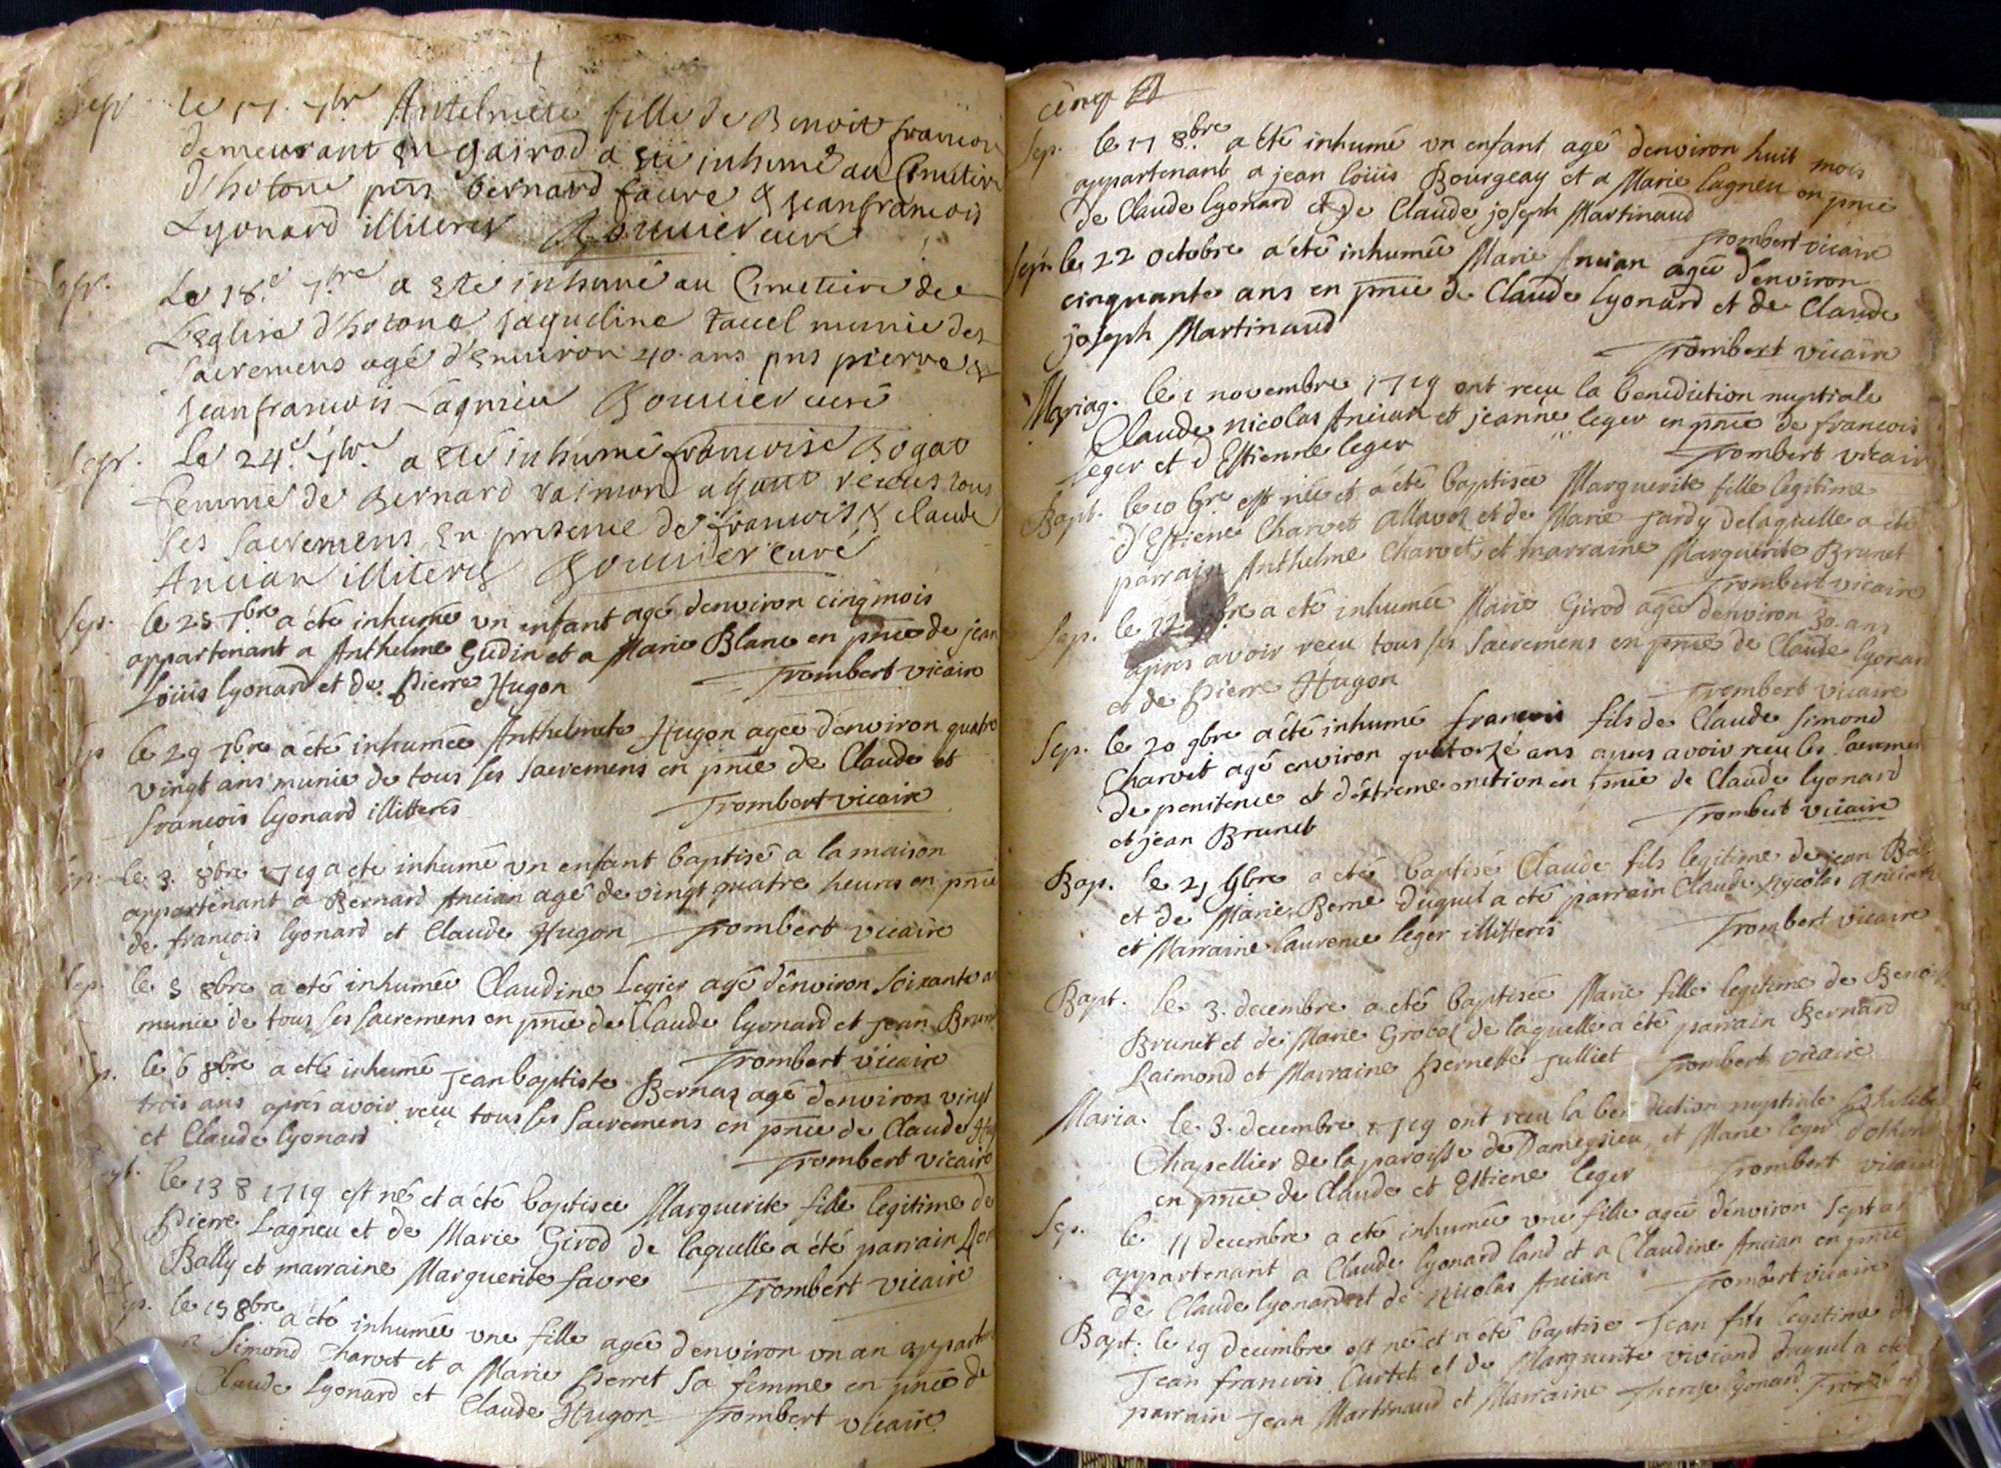 Sepr. le 17. 7bre Antelmete fille de Benoit francon
demeurant en gairod a eté inhumé au Cimetiere
d'hotone pns bernard favre & jeanfrancois
Lyonard illiteres Bouvier curé
Sepr. Le 18e 7bre a eté inhumé au Cimetiere de
L'eglise d'hotone jaqueline munie des
sacremens agé d'environ 40 ans pns pierre &
jeanfrancois Lagnieu Bouvier curé
Sepr. Le 24e 7bre a eté inhumé francoise Bogat
femme de Bernard raimond ayant receus tous
ses sacremens en presence de francois & claude
Ancian illiteres Bouvier curé
Sep. le 25 7bre a été inhumé vn enfant agé denviron cinq mois
appartenant a Anthelme Gudin et a Marie Blanc en pnce de jean
Loüis lyonard et de Pierre Hugon Trombert vicaire
Sep le 29 7bre a été inhumée Anthelmete Hugon agée denviron quatre
vingt ans munie de tous ses sacremens en pnce de Claude et
francois lyonard illitteres Trombert vicaire
Sep. le 3. 8bre 1719 a eté inhumé vn enfant baptisé a la maison
appartenant a Bernard Ancian agé de vingt quatre heures en pnce
de françois lyonard et Claude Hugon Trombert vicaire
Sep. le 5 8bre a eté inhumée Claudine Legier agé d'environ soixante a
munie de tous ses sacremens en pnce de Claude lyonard et jean Brun
Trombert vicaire
p. le 6 8bre a eté inhumé Jean baptiste Bernaz agé denviron vingt
trois ans apres avoir reçu tous ses sacremens en pnce de Claude Hug
et Claude lyonard
Trombert vicaire
apt. le 13 8 1719 est né et a été baptisee Marguerite fille legitime de
Pierre Lagneu et de Marie Girod de laquelle a été parrain
Bally et marraine Marguerite favre Trombert vicaire
Sp. le 15 8bre a été inhumée vne fille agée denviron vn an appart
a Simond Charvet et a Marie Perret sa femme en pnce de
Claude lyonard et Claude Hugon Trombert vicaire
cinq
Sep. le 17 8bre a été inhumé vn enfant agé denviron huit mois
appartenant a jean loüis Bourgeay et a Marie lagneu en pnce
de Claude lyonard et de Claude joseph Martinaud
Trombert vicaire
Sep. le 22 octobre a été inhumée Marie Ancian agée d'environ
cinquante ans en pnce de Claude lyonard et de Claude
joseph Martinaud
Trombert vicaire
Mariag. le 2 novembre 1719 ont recu la benediction nuptiale
Claude nicolas Ancian et jeanne leger en pnce de francois
leger et d Estienne leger Trombert vicair
Bapt. le 10 est née et a été baptisée Marguerite fille legitime
d'Estiene Charvet et de Marie Jardy delaquelle a été
parrain Anthelme Charvet et marraine Marguerite Brunet
Trombert vicaire
Sep. le 12 bre a eté inhumée Marie Girod agée denviron 30. ans
apres avoir recu tous ses sacremens en pnce de Claude lyonar
et de Pierre Hugon
Trombert vicaire
Sep. le 20 9bre a été inhumé francois fils de Claude Simond
Charvet agé environ quatorze ans apres avoir recu les sacremes
de penitence et d'extreme onction en pnce de Claude lyonard
et jean Brunet Trombert vicaire
Bap. le 21 9bre a eté baptisé Claude fils legitime de jean Bal
et de Marie Berne duquel a eté parrain Claude nycolas ancian
et Marraine laurence leger illitteres Trombert vicaire
Bapt. le 3. decembre a eté baptisée Marie fille legitime de Benoi
Brunet et de Marie Groboz de laquelle a été parrain Bernard
Raimond et Marraine Pernette Julliet Trombert vicaire
Maria. le 3. decembre 1719 ont recu la ben diction nuptiale
Chapellier de la paroisse de Dameysieu et Marie leger d'othon
en pnce de Claude et Estiene leger Trombert vicaire
Sep. le 11 decembre a eté inhumée vne fille agée d'environ sept an
appartenant a Claude lyonard land et a Claudine Ancian en pnce
de Claude lyonard et de nicolas Ancian Trombert vicaire
Bapt. le 19 decembre est né et a été baptise Jean fils legitime de
Jean francois Curtet et de Marguerite viviand duquel a eté
parrain Jean Martinaud et Marraine Therese lyonard Trombert